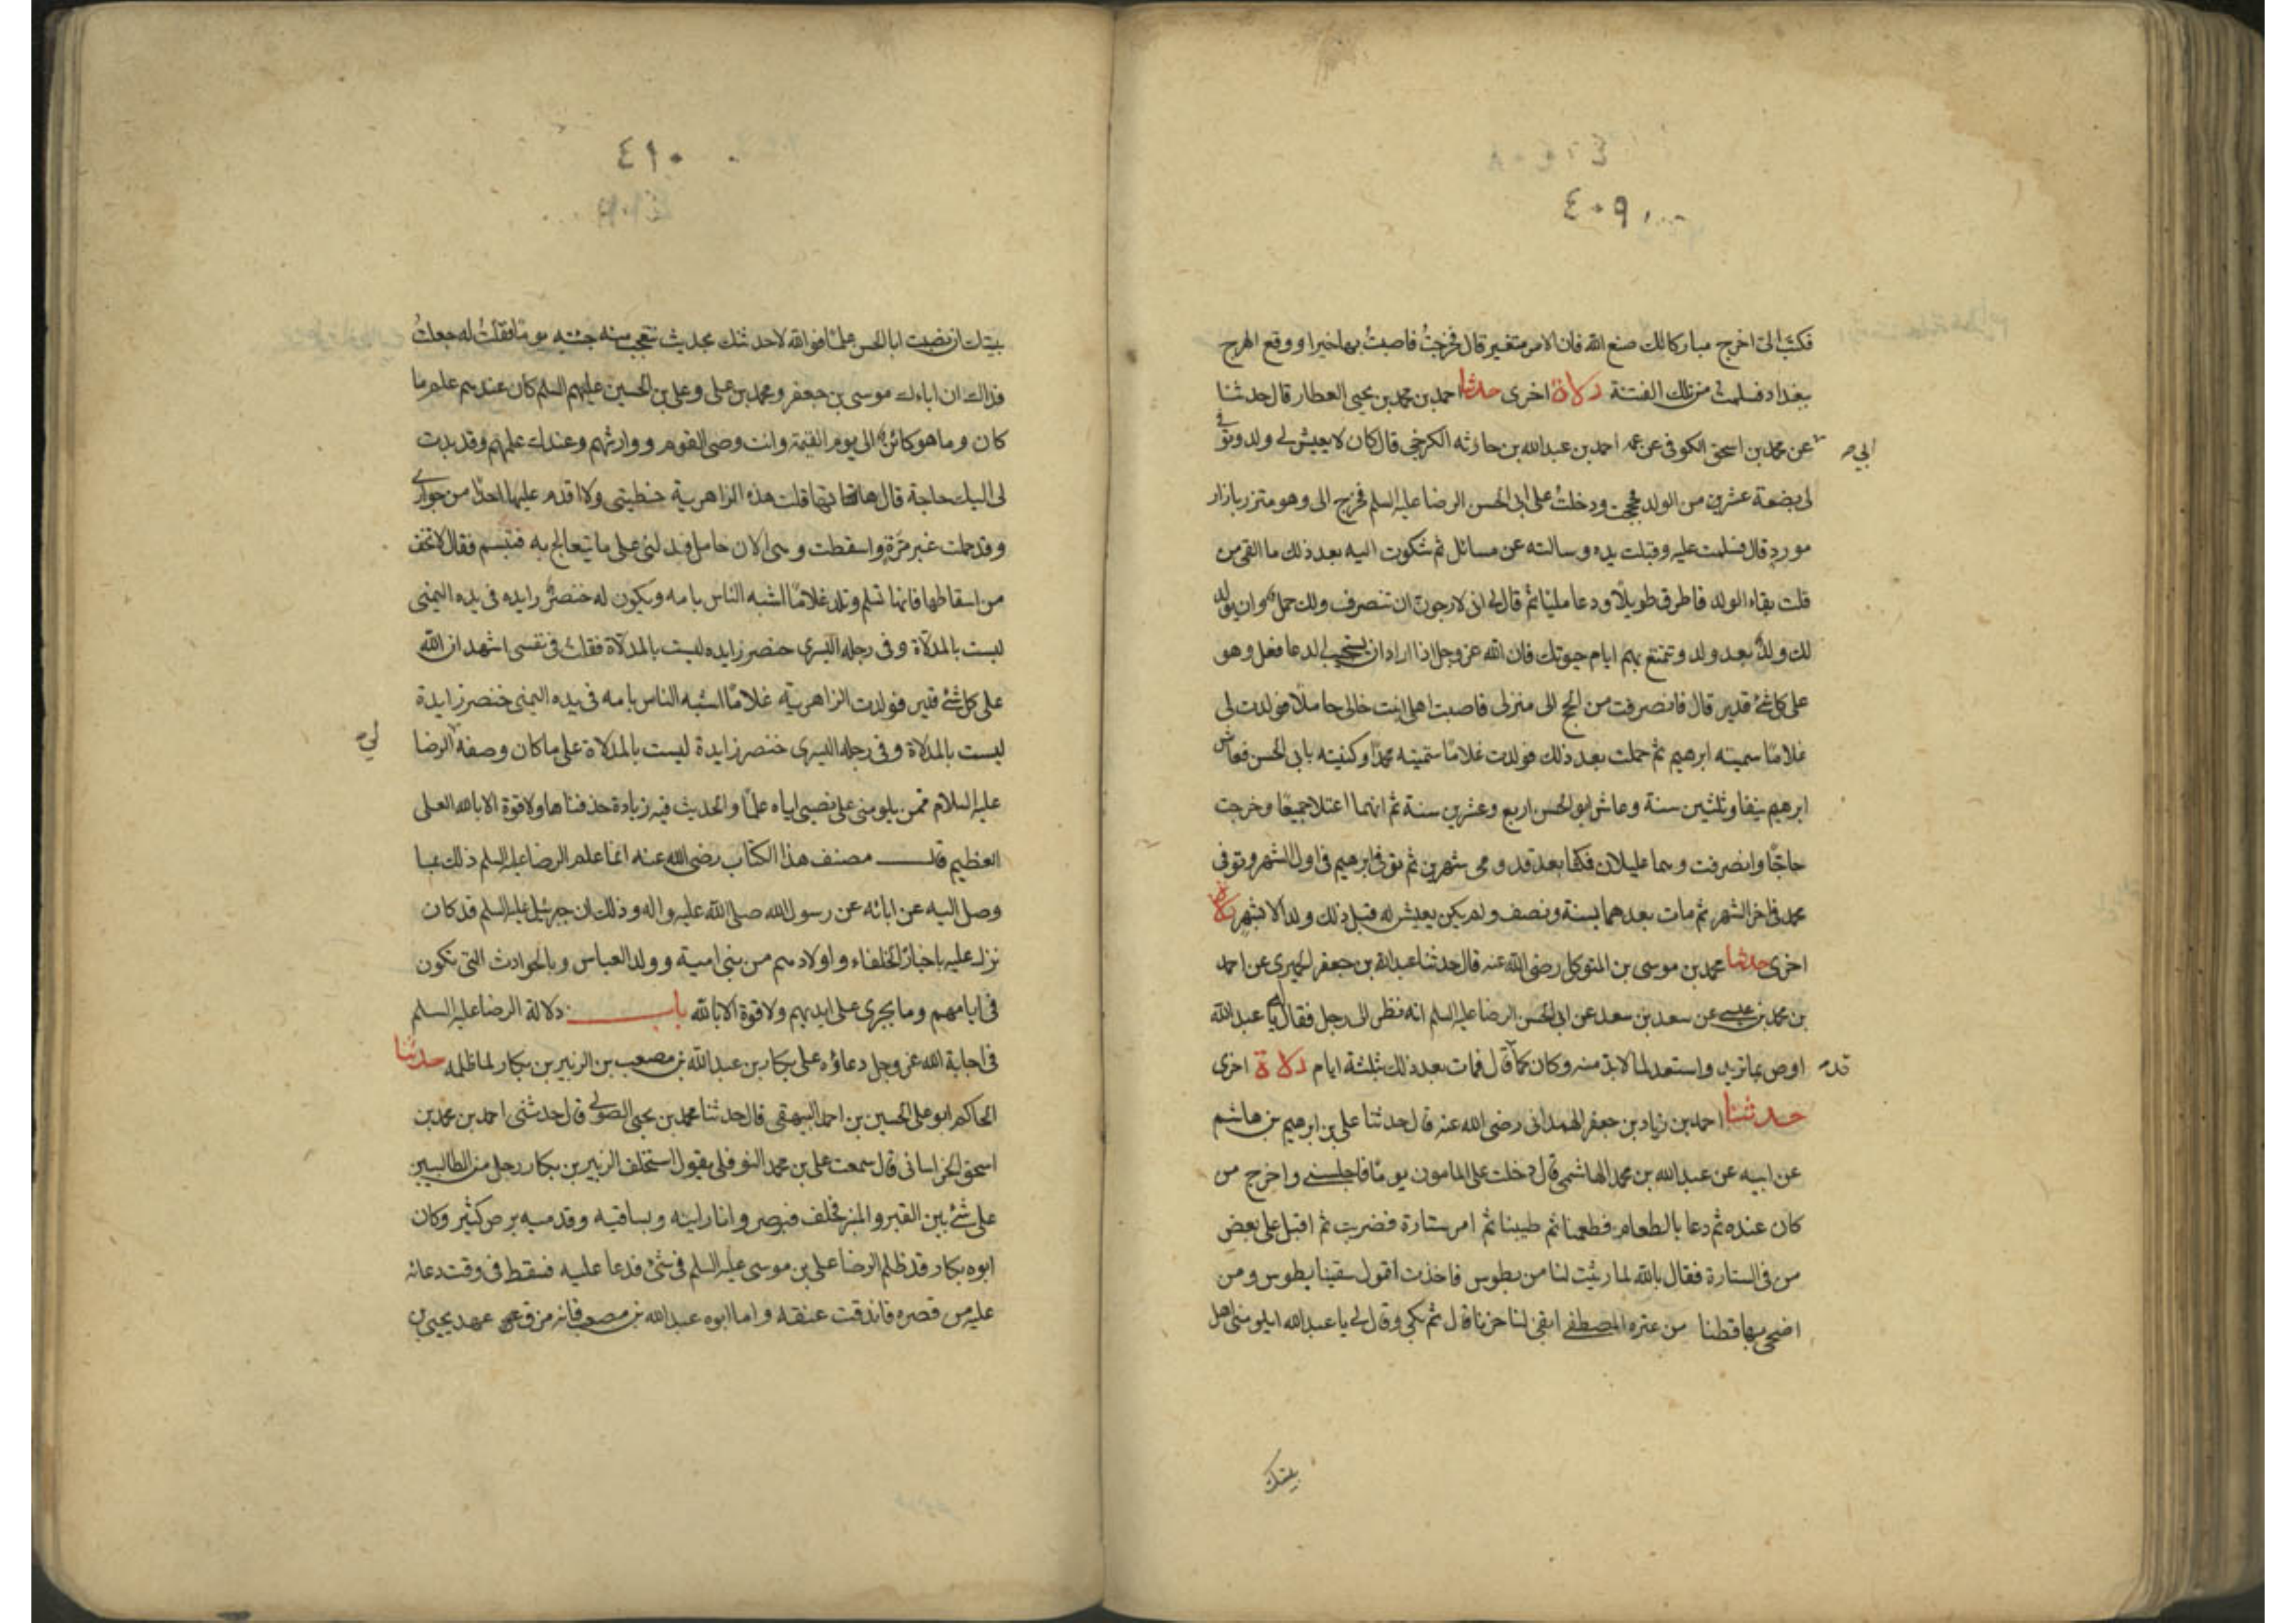 ٤٠٩
فكتب الىّ اخرج مباركا لك صنع الله فان الامر متغير قال فخرجتُ فاصبتُ بها خيرا ووقع الهرج
ببغداد فسلمت من تلك الفتنة دلالة اخرى حدثنا احمد بن محمد بن يحيى العطار قال حدثنا
ابى صح
عن محمد بن اسحق الكوفى عن عمه احمد بن عبدالله بن حارثه الكرخى قال كان لا يعيش لى ولد وتوفى
لى بضعة عشرين من الولد فحججت ودخلتُ على ابى الحسن الرضا عليه السلم فخرج الى وهو متزر بازار
مورد قال فسلمت عليه وقبلت يده وسالته عن مسائل ثم شكوت اليه بعد ذلك ما القى من
قلت بقاء الولد فاطرق طويلاً ودعا مليّا ثم قال لى انى لارجون ان تنصرف ولك حمل وان يولد
لك ولدٌ بعد ولد وتمتع بهم ايام حيوتك فان الله عز وجل اذا اراد ان يستجيب لدعا فعل وهو
على كل شئ قدير قال فانصرفت من الحج الى منزلى فاصبت اهلى ابنت خالى حاملا فولدت لى
غلامًا سميته ابرهيم ثم حملت بعد ذلك فولدت غلامًا سمّيته محمدًا وكنيته بابى الحسن فعاش
ابرهيم نيفا وثلثين سنة وعاش ابو الحسن اربع وعشرين سنة ثم انهما اعتلا جميعًا وخرجت
حاجًا وانصرفت وهما عليلان فمكثا بعد قدومى شهرين ثم توفى ابرهيم فى اول الشهر وتوفى
محمد فى اخر الشهر ثم مات بعدهما بسنة ونصف ولم يكن يعيش له قبل ذلك ولد الا شهر دلالة
اخرى حدثنا محمد بن موسى بن المتوكل رضى الله عنه قال حدثنا عبدالله بن جعفر الحميرى عن احمد
بن محمد بن عيسى عن سعد بن سعد عن ابى الحسن الرضا عليه السلم انه نظر الى رجل فقال له يا عبدالله
اوص بما تريد واستعد لما لابد منه وكان كما قال فمات بعد ذلك بثلثة ايام دلالة اخرى
قد صح
حدثنا احمد بن زياد بن جعفر الهمدانى رضى الله عنه قال حدثنا على بن ابرهيم بن هاشم
عن ابيه عن عبدالله بن محمد الهاشمى قال دخلت على المامون يومًا فاجلسنى واخرج من
كان عنده ثم دعا بالطعام فطعمنا ثم طيبنا ثم امر ستارة فضربت ثم اقبل على بعض
من فى الستارة فقال بالله لما رثيت لنا من بطوس فاخذت اقول سقينا بطوس ومن
اضحى بها قطنا من عتره المصطفى ابقى لنا حزنا قال ثم بكى وقال لى يا عبدالله ايلومنى اهل
بيتك
٤١٠
بيتك ان نصبت ابا الحسن علمًا فوالله لاحدثنك بحديث تتعجب منه جئته يومًا فقلتُ له جعلتُ
فداك ان اباءك موسى بن جعفر ومحمد بن على وعلى بن الحسين عليهم السلم كان عندهم علم ما
كان وما هو كائن الى يوم القيمة وانت وصى القوم ووارثهم وعندك علمهم وقد بدت
لى اليك حاجة قال هاتها قلت هذه الزاهرية حظيتى ولا اقدم عليها احدًا من جوارى
وقد حملت غير مرّة واسقطت وهى الان حامل فدلنى على ما تتعالج به فتبسم فقال لا تخف
من اسقاطها فانها تسلم وتلد غلامًا اشبه الناس بامه ويكون له خنصر زايده فى يده اليمنى
ليست بالمدلاة وفى رجله اليسرى خنصر زايده ليست بالمدلاة فقلت فى نفسى اشهد ان الله
على كل شئ قدير فولدت الزاهرية غلامًا اشبه الناس بامه فى يده اليمنى خنصر زايدة
ليست بالمدلاة وفى رجله اليسرى خنصر زايدة ليست بالمدلاة على ما كان وصفه الرضا
لى صح
عليه السلام فمن يلومنى على نصبى اياه علمًا والحديث فيه زيادة حذفناها ولا قوة الا بالله العلى
العظيم قال مصنف هذا الكتاب رضى الله عنه انما علم الرضا عليه السلم ذلك بما
وصل اليه عن ابائه عن رسول الله صلى الله عليه واله وذلك ان جبرئيل عليه السلم قد كان
نزل عليه باخبار الخلفاء واولادهم من بنى امية وولد العباس وبالحوادث التى تكون
فى ايامهم وما يجرى على ايديهم ولا قوة الا بالله باب دلالة الرضا عليه السلم
فى اجابة الله عز وجل دعاؤه على بكار بن عبدالله بن مصعب بن الزبير بن بكار لما ظلمه حدثنا
الحاكم ابو على الحسين بن احمد البيهقى قال حدثنا محمد بن يحيى الصولى قال حدثنى احمد بن محمد بن
اسحق الخراسانى قال سمعت على بن محمد النوفلى يقول استحلف الزبير بن بكار رجل من الطالبيين
على شئ بين القبر والمنبر فحلف فبرص وانا رايته وبساقيه وقدميه برص كثير وكان
ابوه بكار قد ظلم الرضا على بن موسى عليه السلم فى شئ فدعا عليه فسقط فى وقت دعائه
عليه من قصره فاندقت عنقه واما ابوه عبدالله بن مصعب فانه مزق عهد يحيى بن